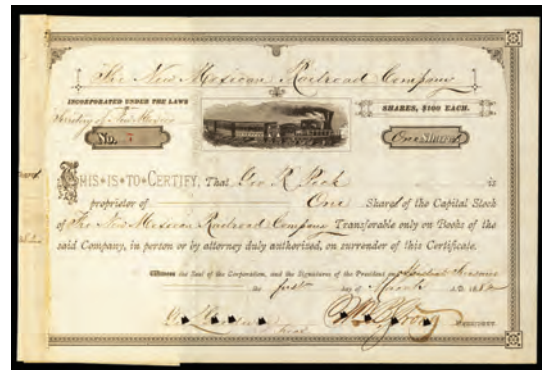 The New Mexican Railroad Company
INCORPORATED UNDER THE LAWS
Territory of New Mexico
SHARES, $100 EACH.
No. 7
One Share
THIS·IS·TO·CERTIFY, That Geo R Peck is
proprietor of One Shares of the Capital Stock
of The New Mexican Railroad Company Transferable only on Books of the
said Company, in person or by attorney duly authorized, on surrender of this Certificate.
Witness the Seal of the Corporation, and the Signatures of the President and
the first day of March A.D. 188
PRESIDENT